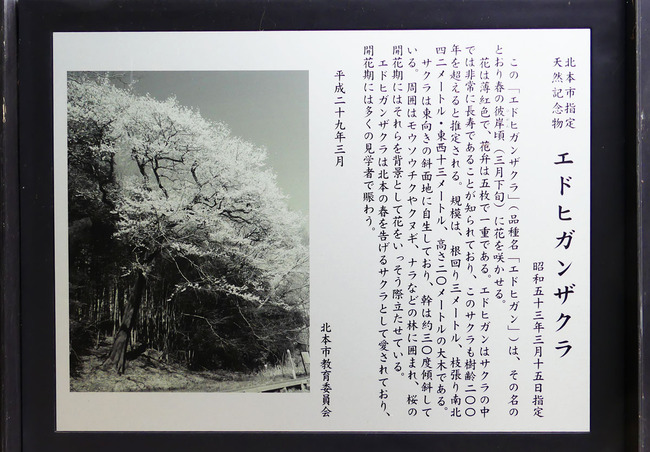 北本市指定
天然記念物
エドヒガンザクラ
昭和五十三年三月十五日指定
この「エドヒガンザクラ」（品種名「エドヒガン」）は、その名の
とおり春の彼岸頃（三月下旬）に花を咲かせる。
花は薄紅色で、花弁は五枚で一重である。エドヒガンはサクラの中
では非常に長寿であることが知られており、このサクラも樹齢二〇〇
年を超えると推定される。規模は、根回り三メートル、枝張り南北
四二メートル・東西十三メートル、高さ二〇メートルの大木である。
サクラは東向きの斜面地に自生しており、幹は約三〇度傾斜して
いる。周囲はモウソウチクやクヌギ、ナラなどの林に囲まれ、桜の
開花期にはそれらを背景として花をいっそう際立たせている。
エドヒガンザクラは北本の春を告げるサクラとして愛されており、
開花期には多くの見学者で賑わう。
平成二十九年三月
北本市教育委員会